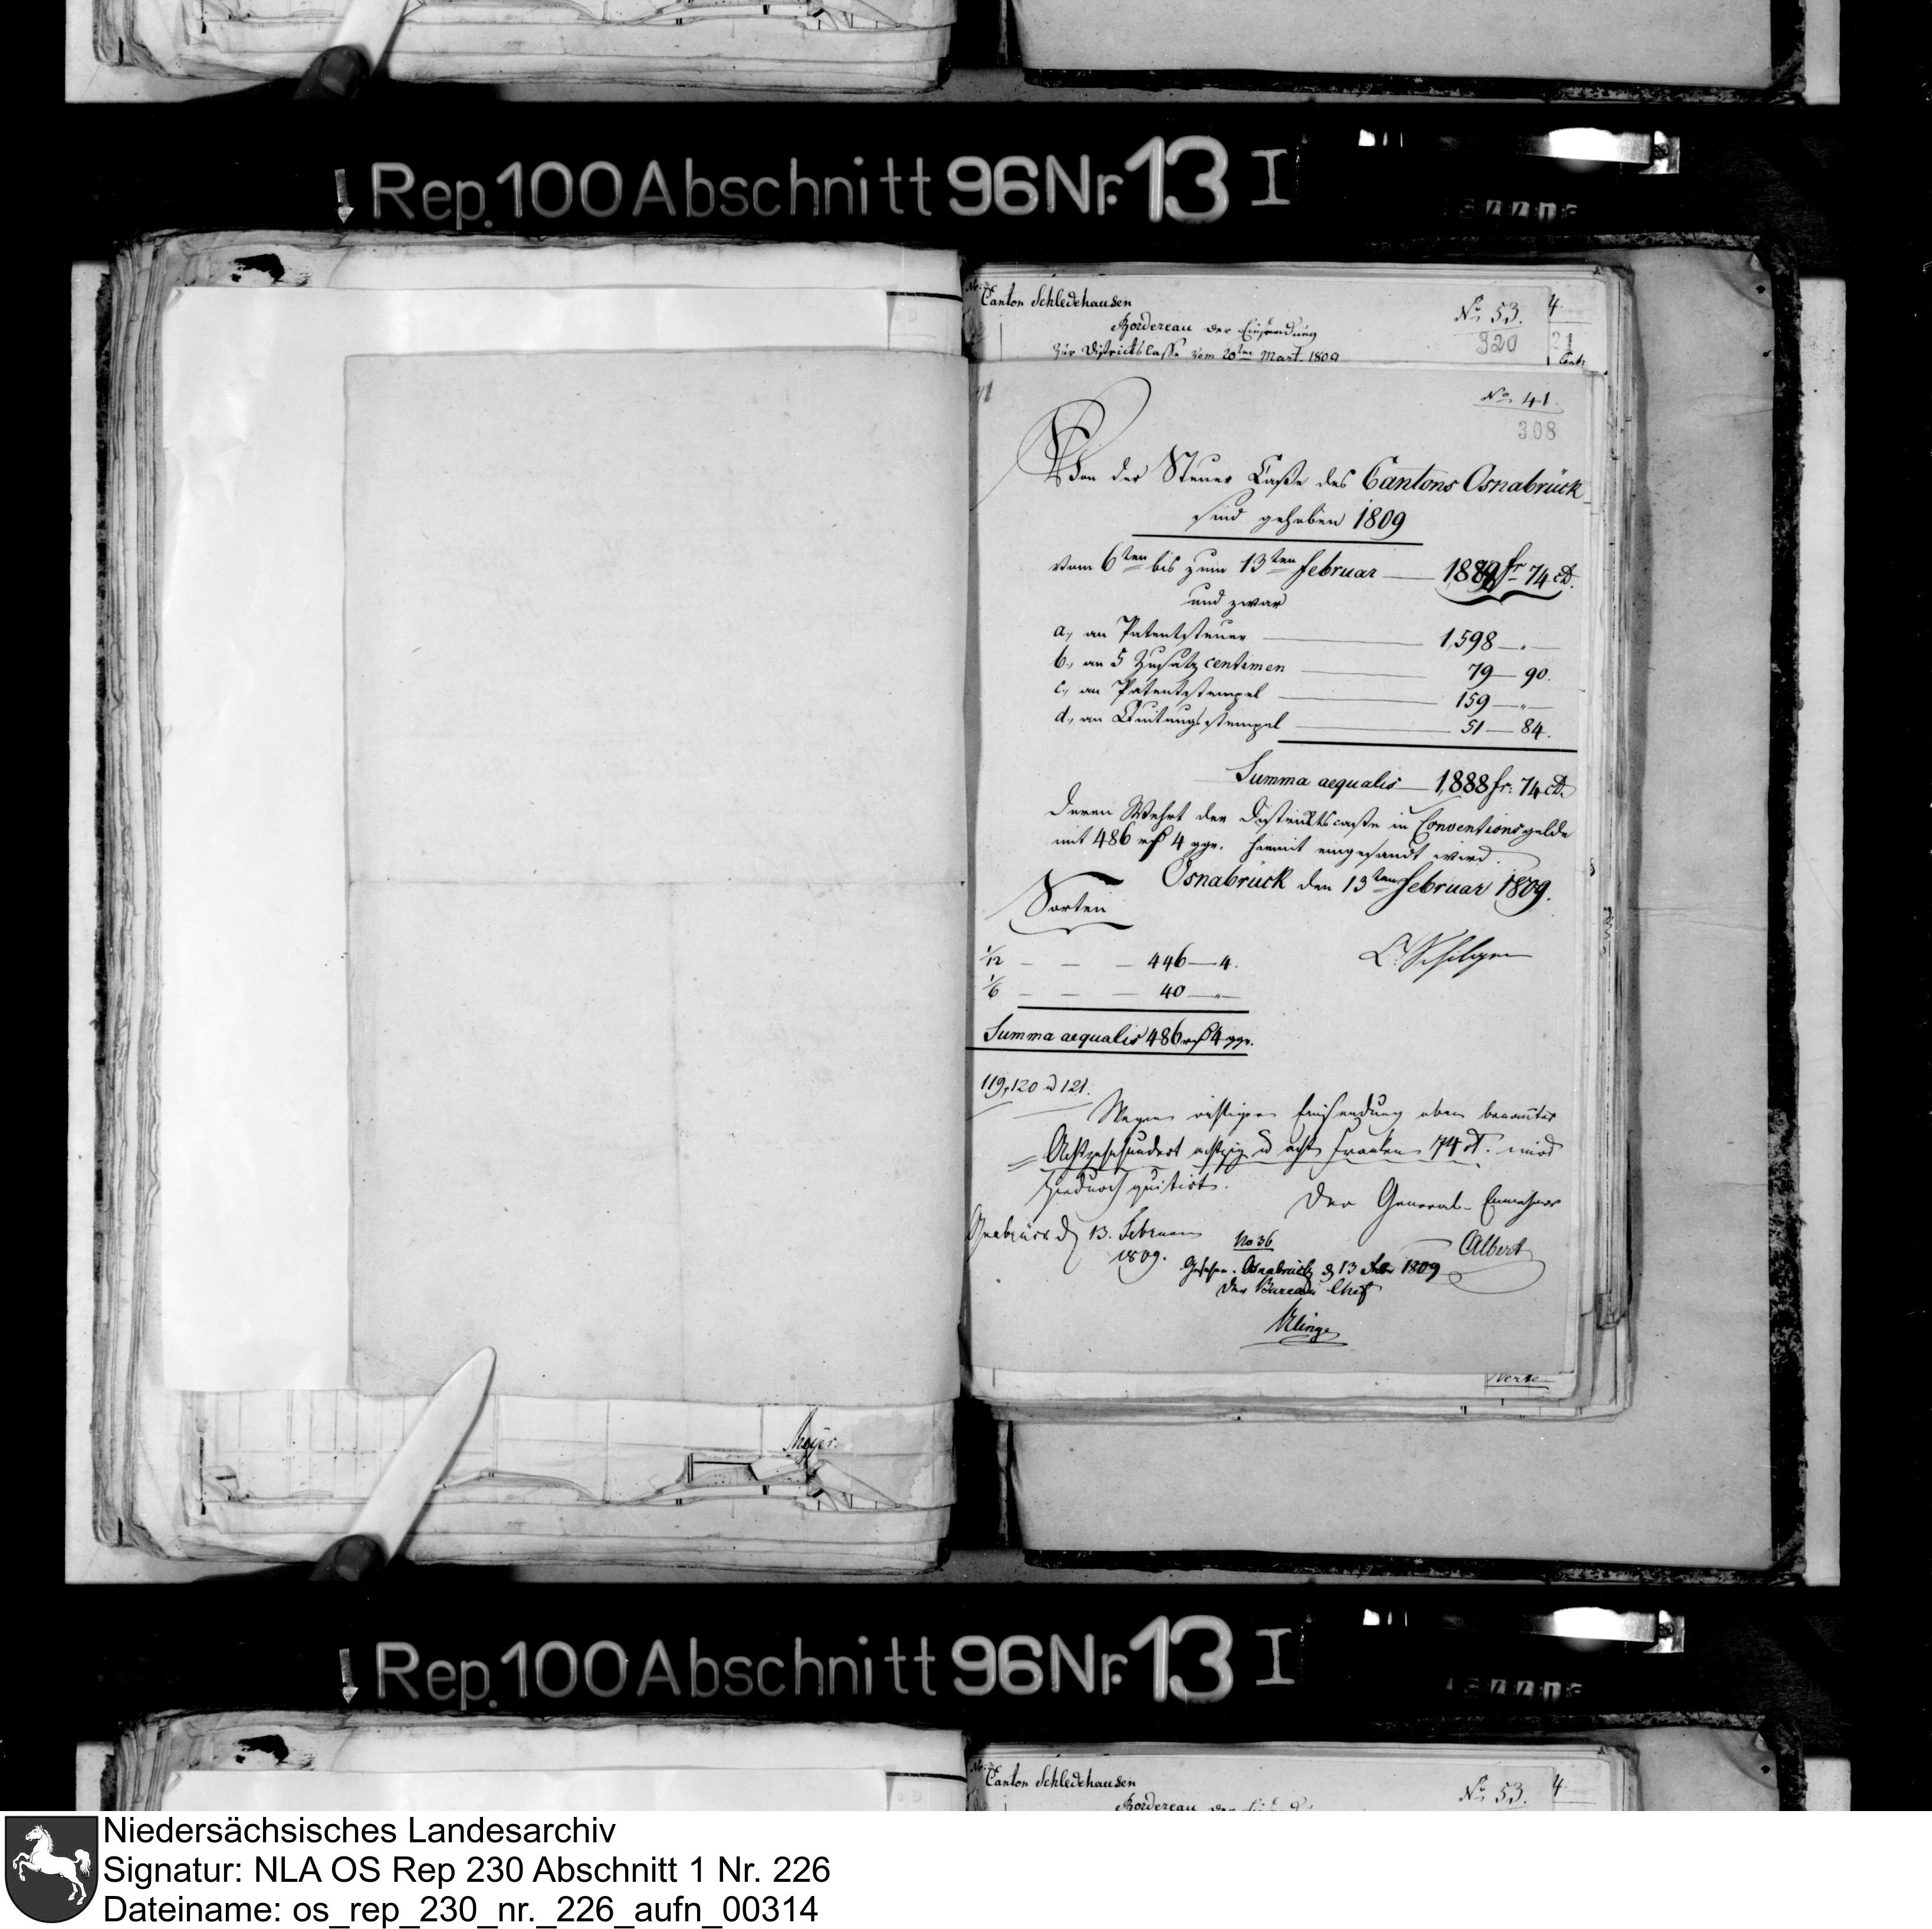 Rep. 100 Abschnitt 96 Nr. 13 I
Canton Schledehausen
Bordereau der Einsendung
zur Districts Casse vom 20ten Mart. 1809
No. 53.
320
4
21
Cent:
No. 41.
308
Von der Steuer Casse des Cantons Osnabrück
sind gehoben 1809
vom 6ten bis zum 13ten Februar — 1889 fr 74 ct.
und zwar
a., an Patentsteuer — 1,598 — " —
b., an 5 Zusatz centimen — 79 — 90.
c., an Patentstempel — 159 — " —
d., an Quitungsstempel — 51 — 84.
Summa aequalis — 1,888 fr: 74 ct.
deren Wehrt der Districtscasse in Conventionsgelde
mit 486 rth 4 ggr. hiemit eingesandt wird.
Osnabrück den 13ten Februar 1809.
Sorten
1/12 — — — 446 — 4.
1/6 — — — 40 — " —
Summa aequalis 486 rth 4 ggr.
C. Schilgen
119, 120 u 121.
Wegen richtiger Einsendung oben benannter
Achtzehnhundert achtzig u acht Franken 74 ct. wird
hiedurch quitirt.
Der General-Einnehmer
Osnabrück d 13. Februar
1809.
Albert
No 36
Gesehen. Osnabrück d 13 Febr 1809
Der Bureau Chef
Klinge
Meyer.
Rep. 100 Abschnitt 96 Nr. 13 I
Canton Schledehausen
Bordereau der
No. 53.
4
Niedersächsisches Landesarchiv
Signatur: NLA OS Rep 230 Abschnitt 1 Nr. 226
Dateiname: os_rep_230_nr._226_aufn_00314